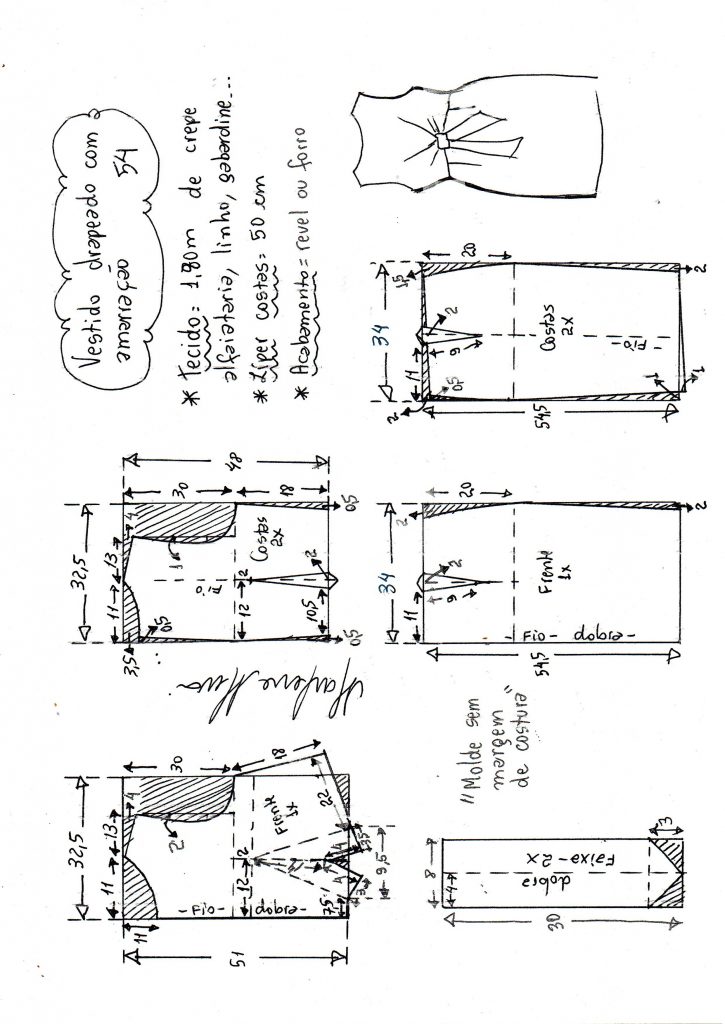 Vestido drapeado com a
amarração 54
* Tecido = 1,80m de crepe
alfaiataria, linho, gabardine...
* Zíper costas = 50 cm
* Acabamento = revel ou forro
32,5
11 13 4
3,5
0,5
1
30
48
18
Fio
Costas
2x
12 2
10,5
2
0,5 0,5
34
11
2
0,5
9
2
1,5
20
Costas
2x
- Fio -
54,5
1
1
2
32,5
11 13 4
11
2
30
51
18
Frente
1x
12 2
- Fio - dobra -
22
7,5
3
4
9,5
34
11
9
2
2
20
Frente
1x
- Fio - dobra -
54,5
2
"Molde sem
margem
de costura"
8
4
dobra
Faixa - 2x
30
3